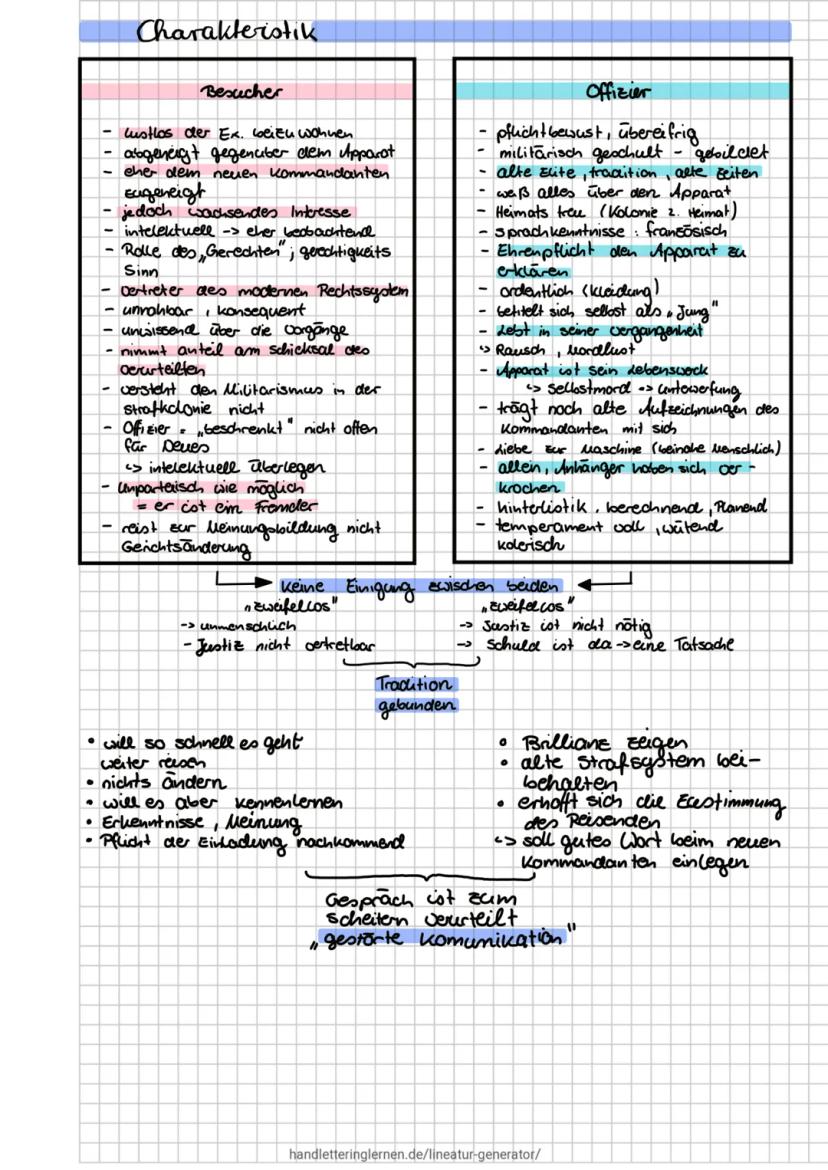 Charakteristik
Besucher
- lustlos der Ex. beizuwohnen
- abgeneigt gegenüber dem Apparat
- eher dem neuen Kommandanten
zugeneigt
- jedoch wachsendes Interesse
- intelektuell -> eher beobachtend
- Rolle des „Gerechten"; gerechtigkeits
Sinn
- Vertreter des modernen Rechtssystem
- unnahbar, konsequent
- unwissend über die Vorgänge
- nimmt anteil am schicksal des
verurteilten
- versteht den Militarismus in der
Strafkolonie nicht
- Offizier = „beschrenkt" nicht offen
für Neues
↳ intelektuell Überlegen
- Unparteisch wie möglich
= er ist ein Fremder
- reist zur Meinungsbildung nicht
Gerichtsänderung
Offizier
- pflichtbewust, übereifrig
- militärisch geschult - gebildet
- alte Elite, tradition, alte Zeiten
- weiß alles über den Apparat
- Heimats treu (Kolonie 2. Heimat)
- sprachkenntnisse: französisch
- Ehrenpflicht den Apparat zu
erklären
- ordentlich (Kleidung)
- betitelt sich selbst als „Jung"
- Lebt in seiner vergangenheit
↳ Rausch, Mordlust
- Apparat ist sein Lebenswerk
↳ Selbstmord => Unterwerfung
- trägt noch alte Aufzeichnungen des
Kommandanten mit sich
- Liebe zur Maschine (beinahe Menschlich)
- allein, Anhänger haben sich ver-
krochen
- hinterlistik, berechnend, Planend
- temperament voll, wütend
kolerisch
Keine Einigung zwischen beiden
„zweifellos"
-> unmenschlich
- Justiz nicht vertretbar
„zweifellos"
-> Justiz ist nicht nötig
-> Schuld ist da -> eine Tatsache
Tradition
gebunden
• will so schnell es geht
weiter reisen
• nichts ändern
• will es aber kennenlernen
• Erkenntnisse, Meinung
• Pflicht der Einladung nachkommend
• Brillianz zeigen
• alte Strafsystem bei-
behalten
• erhofft sich die Zustimmung
des Reisenden
↳ soll gutes Wort beim neuen
Kommandanten einlegen
Gespräch ist zum
scheitern verurteilt
„gestörte Komunikation"
handletteringlernen.de/lineatur-generator/